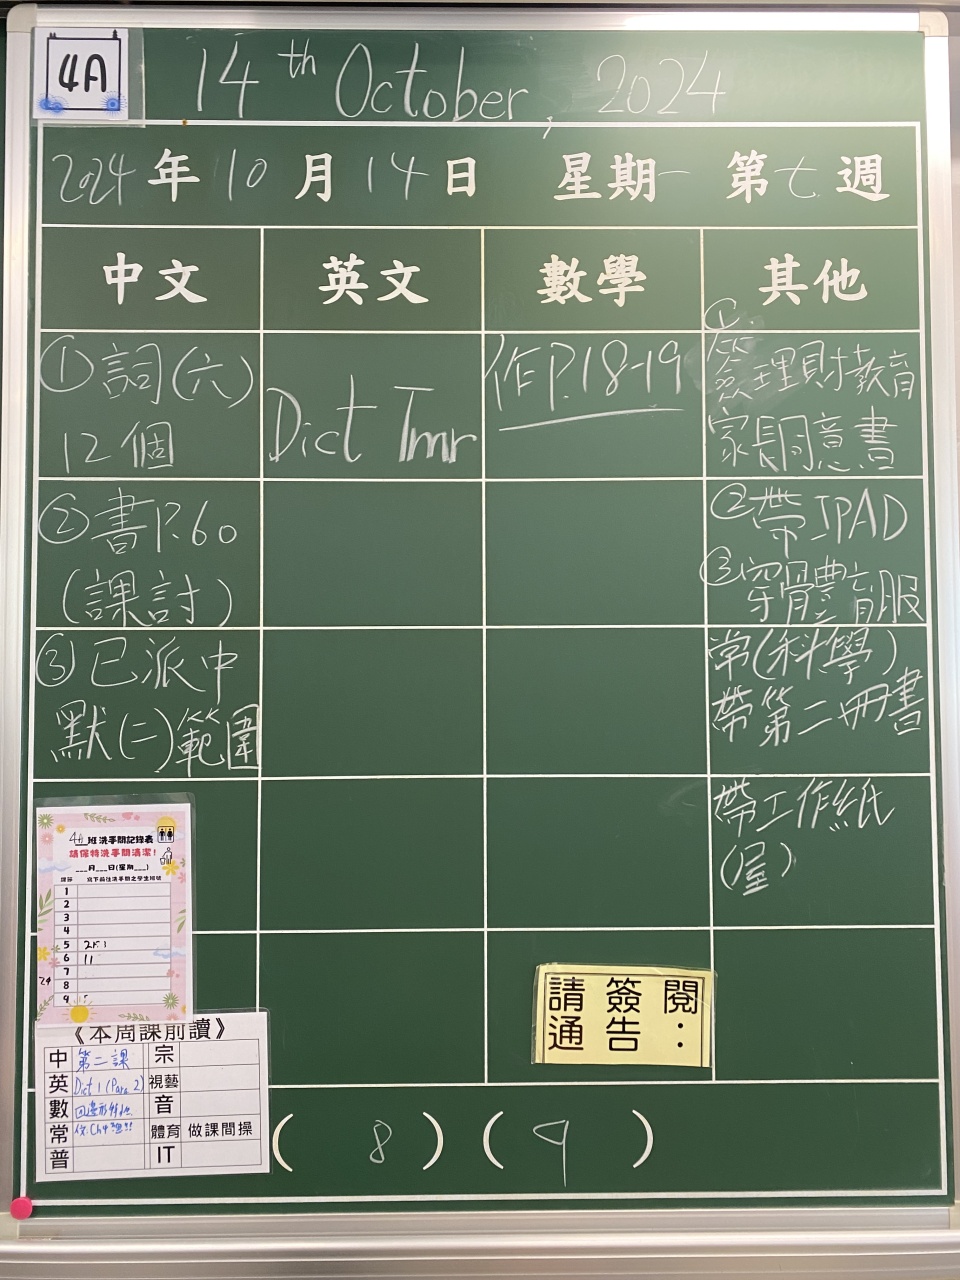 4A
14th October, 2024
2024年10月14日 星期一 第七週
中文 英文 數學 其他
①詞(六)
12個
②書P.60
(課討)
③已派中
默(二)範圍
Dict Tmr
作P.18-19
①
簽理財教育
家長同意書
②帶IPAD
③穿體育服
常(科學)
帶第二冊書
帶工作紙
(屋)
4A班洗手間記錄表
請保持洗手間清潔!
___月___日(星期___)
課節 寫下前往洗手間之學生班號
1
2
3
4
5
6 11
7
24 8
9
《本周課前讀》
中 第二課 宗
英 Dict 1 (Para 2) 視藝
數 四邊形特性 音
常 體育 做課間操
普 IT
請簽閱
通告：
( 8 ) ( 9 )